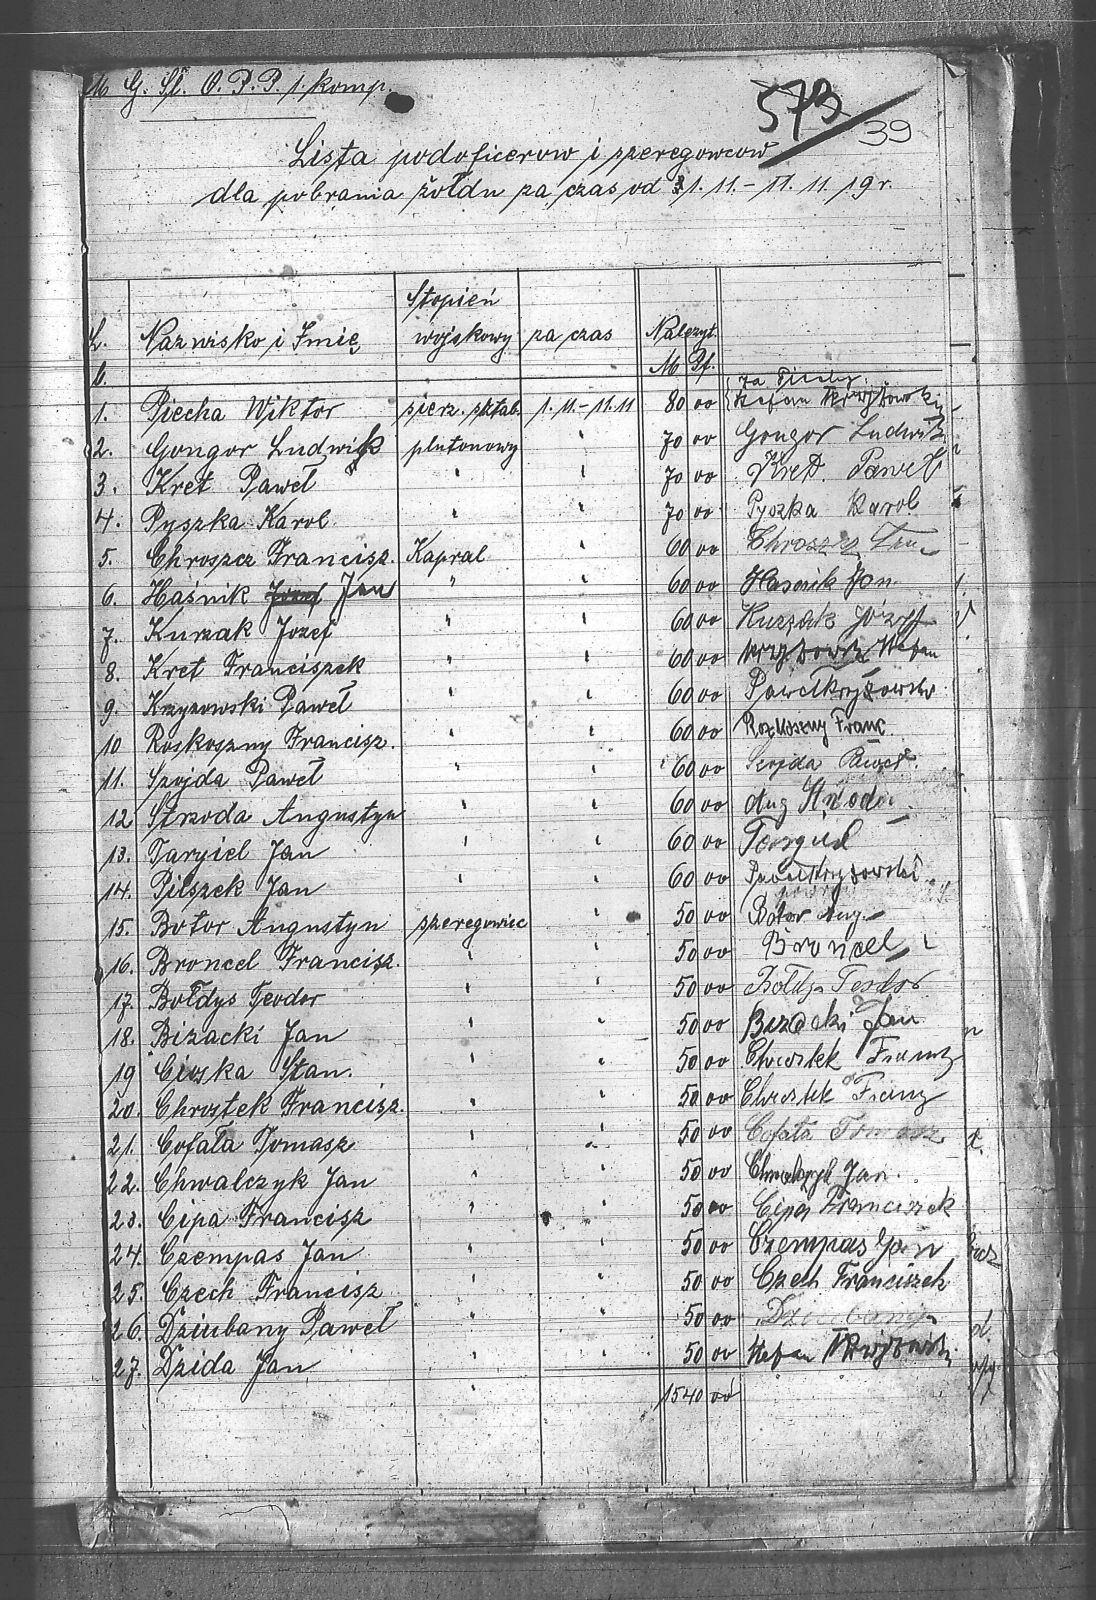 M G. Śl. O. P. P. 1. komp.
573/39
Lista podoficerow i szeregowcow
dla pobrania żołdu za czas od 1. 11. - 11. 11. 19 r.
L. Nazwisko i Imię Stopień wojskowy za czas Należyt.
b. M Pf.
1. Piecha Wiktor sierz. sztab. 1.11-11.11 80 00 za Piechę Stefan Krzyżowski
2. Gongor Ludwik plutonowy " 70 00 Gongor Ludwik
3. Kret Paweł " " 70 00 Kret Paweł
4. Pyszka Karol " " 70 00 Pyszka Karol
5. Chroszcz Francisz. Kapral " 60 00 Chroszcz Fra
6. Haśnik Józef Jan " " 60 00 Hasnik Jan
7. Kurzak Jozef " " 60 00 Kurzak Józef
8. Kret Franciszek " " 60 00 Krzyżowski Stefan
9. Krzyzowski Paweł " " 60 00 Paweł Kryżowski
10 Roskoszny Francisz. " " 60 00 Rozkoszny Franc
11. Szojda Paweł " " 60 00 Szojda Paweł
12 Strzoda Augustyn " " 60 00 Aug Strzoda
13. Targiel Jan " " 60 00 Targiel
14. Pilszek Jan " " 60 00 Paweł Kryżowski
15. Botor Augustyn szeregowiec " 50 00 Botor Aug.
16. Broncel Francisz. " " 50 00 Broncel
17. Bołdys Teodor " " 50 00 Bołdys Teodor
18. Bizacki Jan " " 50 00 Bizacki Jan
19 Cioska Stan. " " 50 00 Chrostek Franz
20. Chrostek Francisz. " " 50 00 Chrostek Franz
21. Cofała Tomasz " " 50 00 Cofała Tomasz
22. Chwalczyk Jan " " 50 00 Chwalczyk Jan.
23. Cipa Francisz " " 50 00 Cipa Franciszek
24. Czempas Jan " " 50 00 Czempas Jan
25. Czech Francisz " " 50 00 Czech Franciszek
26. Dziubany Paweł " " 50 00 Dziubany
27. Dzida Jan " " 50 00 Stefan Krzyżowski
1540 00